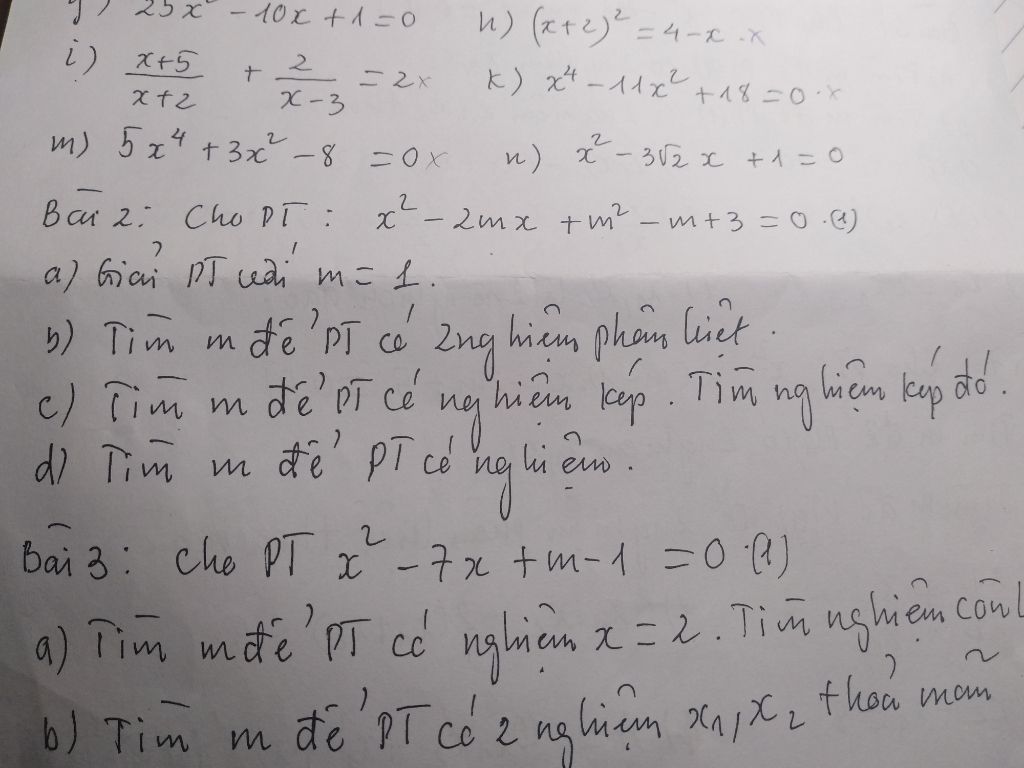 g) 25x² - 10x + 1 = 0 h) (x+2)² = 4 - x . x
i) \frac{x+5}{x+2} + \frac{2}{x-3} = 2 x k) x⁴ - 11x² + 18 = 0 . x
m) 5x⁴ + 3x² - 8 = 0 x n) x² - 3√2 x + 1 = 0
Bài 2: Cho PT: x² - 2mx + m² - m + 3 = 0 . (1)
a) Giải PT với m = 1.
b) Tìm m để PT có 2 nghiệm phân biệt.
c) Tìm m để PT có nghiệm kép. Tìm nghiệm kép đó.
d) Tìm m để PT có nghiệm.
Bài 3: Cho PT x² - 7x + m - 1 = 0 . (1)
a) Tìm m để PT có nghiệm x = 2. Tìm nghiệm còn l
b) Tìm m để PT có 2 nghiệm x₁, x₂ thoả mãn